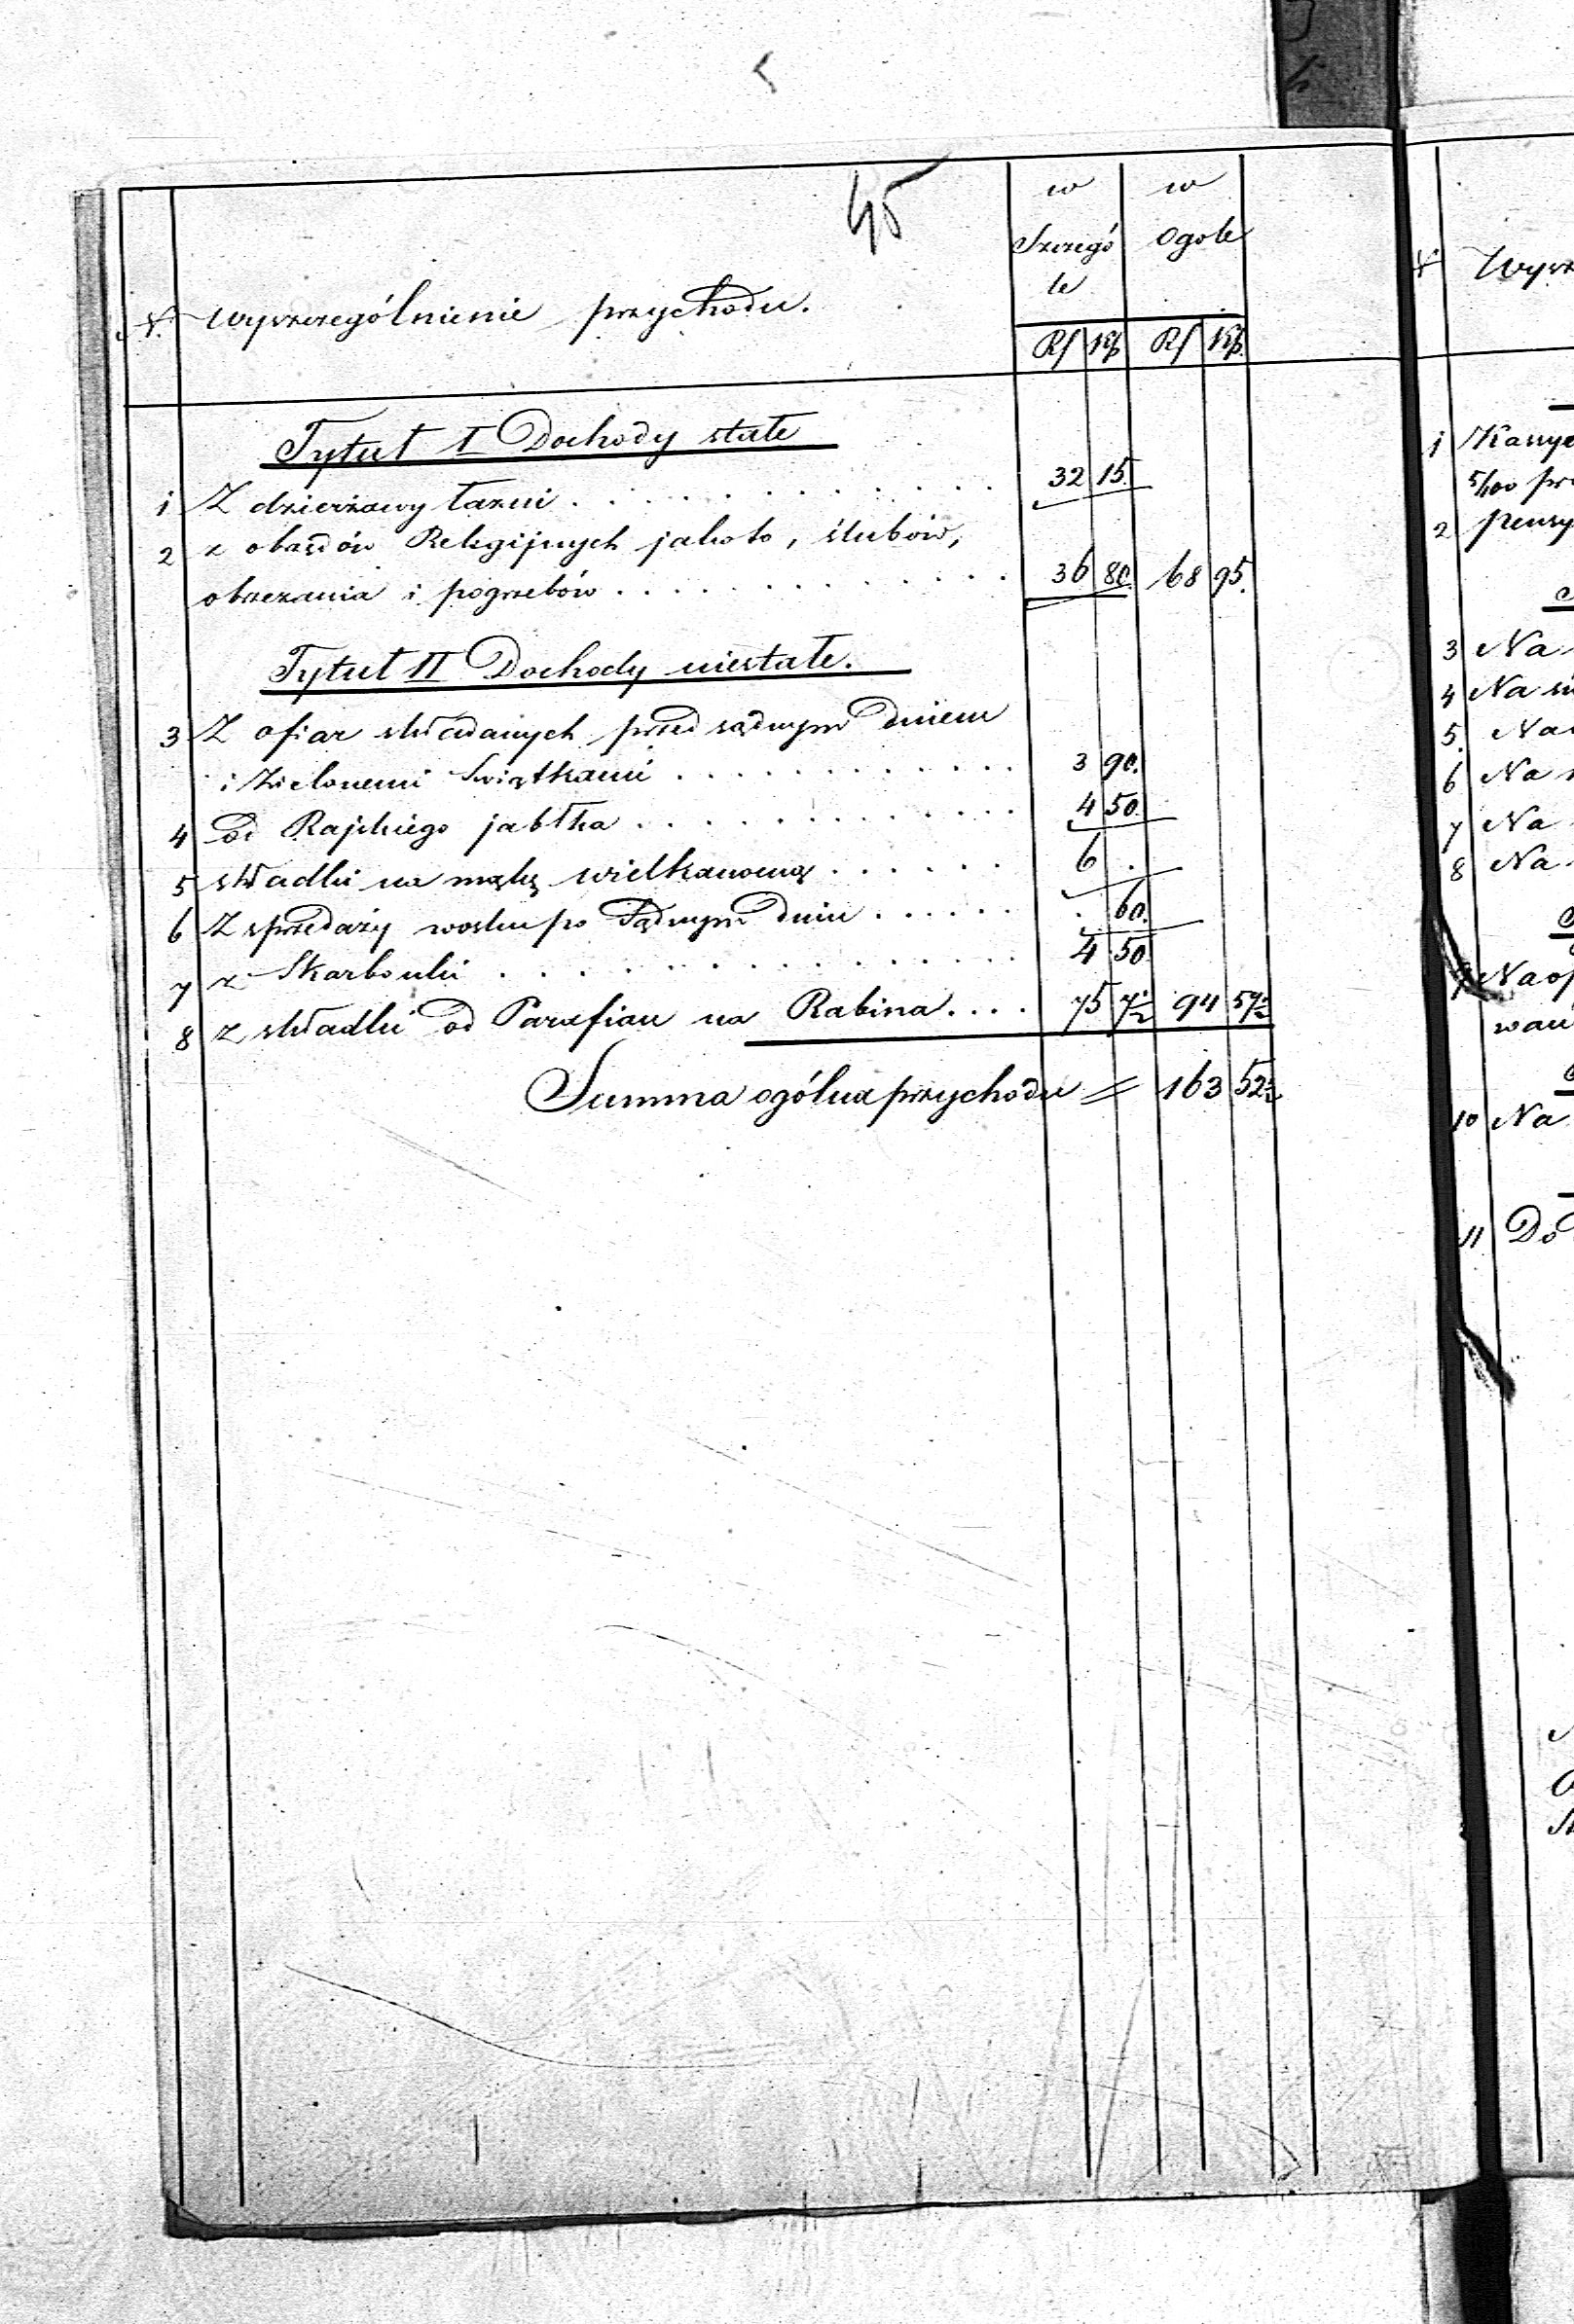 45
w w
Szczegó Ogole
le
N. Wyszczególnienie przychodu.
Rs Kp. Rs Kp.
Tytuł I Dochody stałe
1 Z dzierżawy łaźni . . . . . . . . . . 32 15.
2 z obżdów Religijnych jakoto, ślubów,
obrzezania i pogrzebów . . . . . . . . . . 36 80. 68 95.
Tytuł II Dochody niestałe.
3 Z ofiar składanych przed sądnym dniem
i Zielonemi Swiątkami . . . . . . . . . . 3 90.
4 od Rajskiego jabłka . . . . . . . . . . 4 50.
5 składki na mąkę wielkanocną . . . . . . 6 .
6 Z sprzedaży wosku po Sądnym dniu . . . . . . . 60.
7 z Skarbonki . . . . . . . . . . 4 50
8 z składki od Parafian na Rabina. . . . 75 7½ 94 57½
Summa ogólna przychodu = 163 52½
N Wysz
1 Kassye
5/100
2 pensy
3 Na
4 Na
5. Na
6 Na
7 Na
8 Na
Na op
wan
10 Na
11 Do